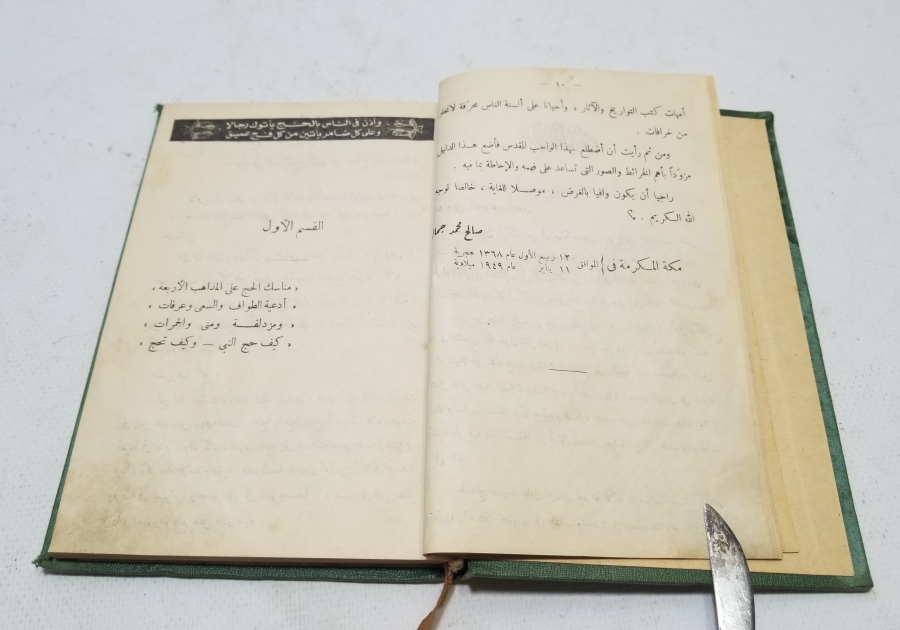 — ١٠ —
أمهات كتب التواريخ والآثار ، وأحيانا على ألسنة الناس محرفة
من خرافات .
ومن ثم رأيت أن أضطلع بهذا الواجب المقدس فأضع هـذا الدليل
مزوّداً بأهم الخرائط والصور التى تساعد على فهمه والإحاطة بما فيه .
راجيا أن يكون وافيا بالغرض ، موصـلا للغاية ، خالصا لوجه
الله الـكريم . ؟
صالح محمد جمال
مكة المـكرمة فى { ١٢ ربيع الأول عام ١٣٦٨ هجرية
الموافق ١١ يناير عام ١٩٤٩ ميلادية
وأذن فى الناس بالحـج يأتوك رجالا
وعلى كل ضامر يأتين من كل فـج عميق
القسم الأول
« مناسك الحج على المذاهب الأربعة »
« أدعية الطواف والسعى وعرفات »
« ومزدلفـة ومنى والجمرات »
« كيف حج النبي — وكيف تحج »